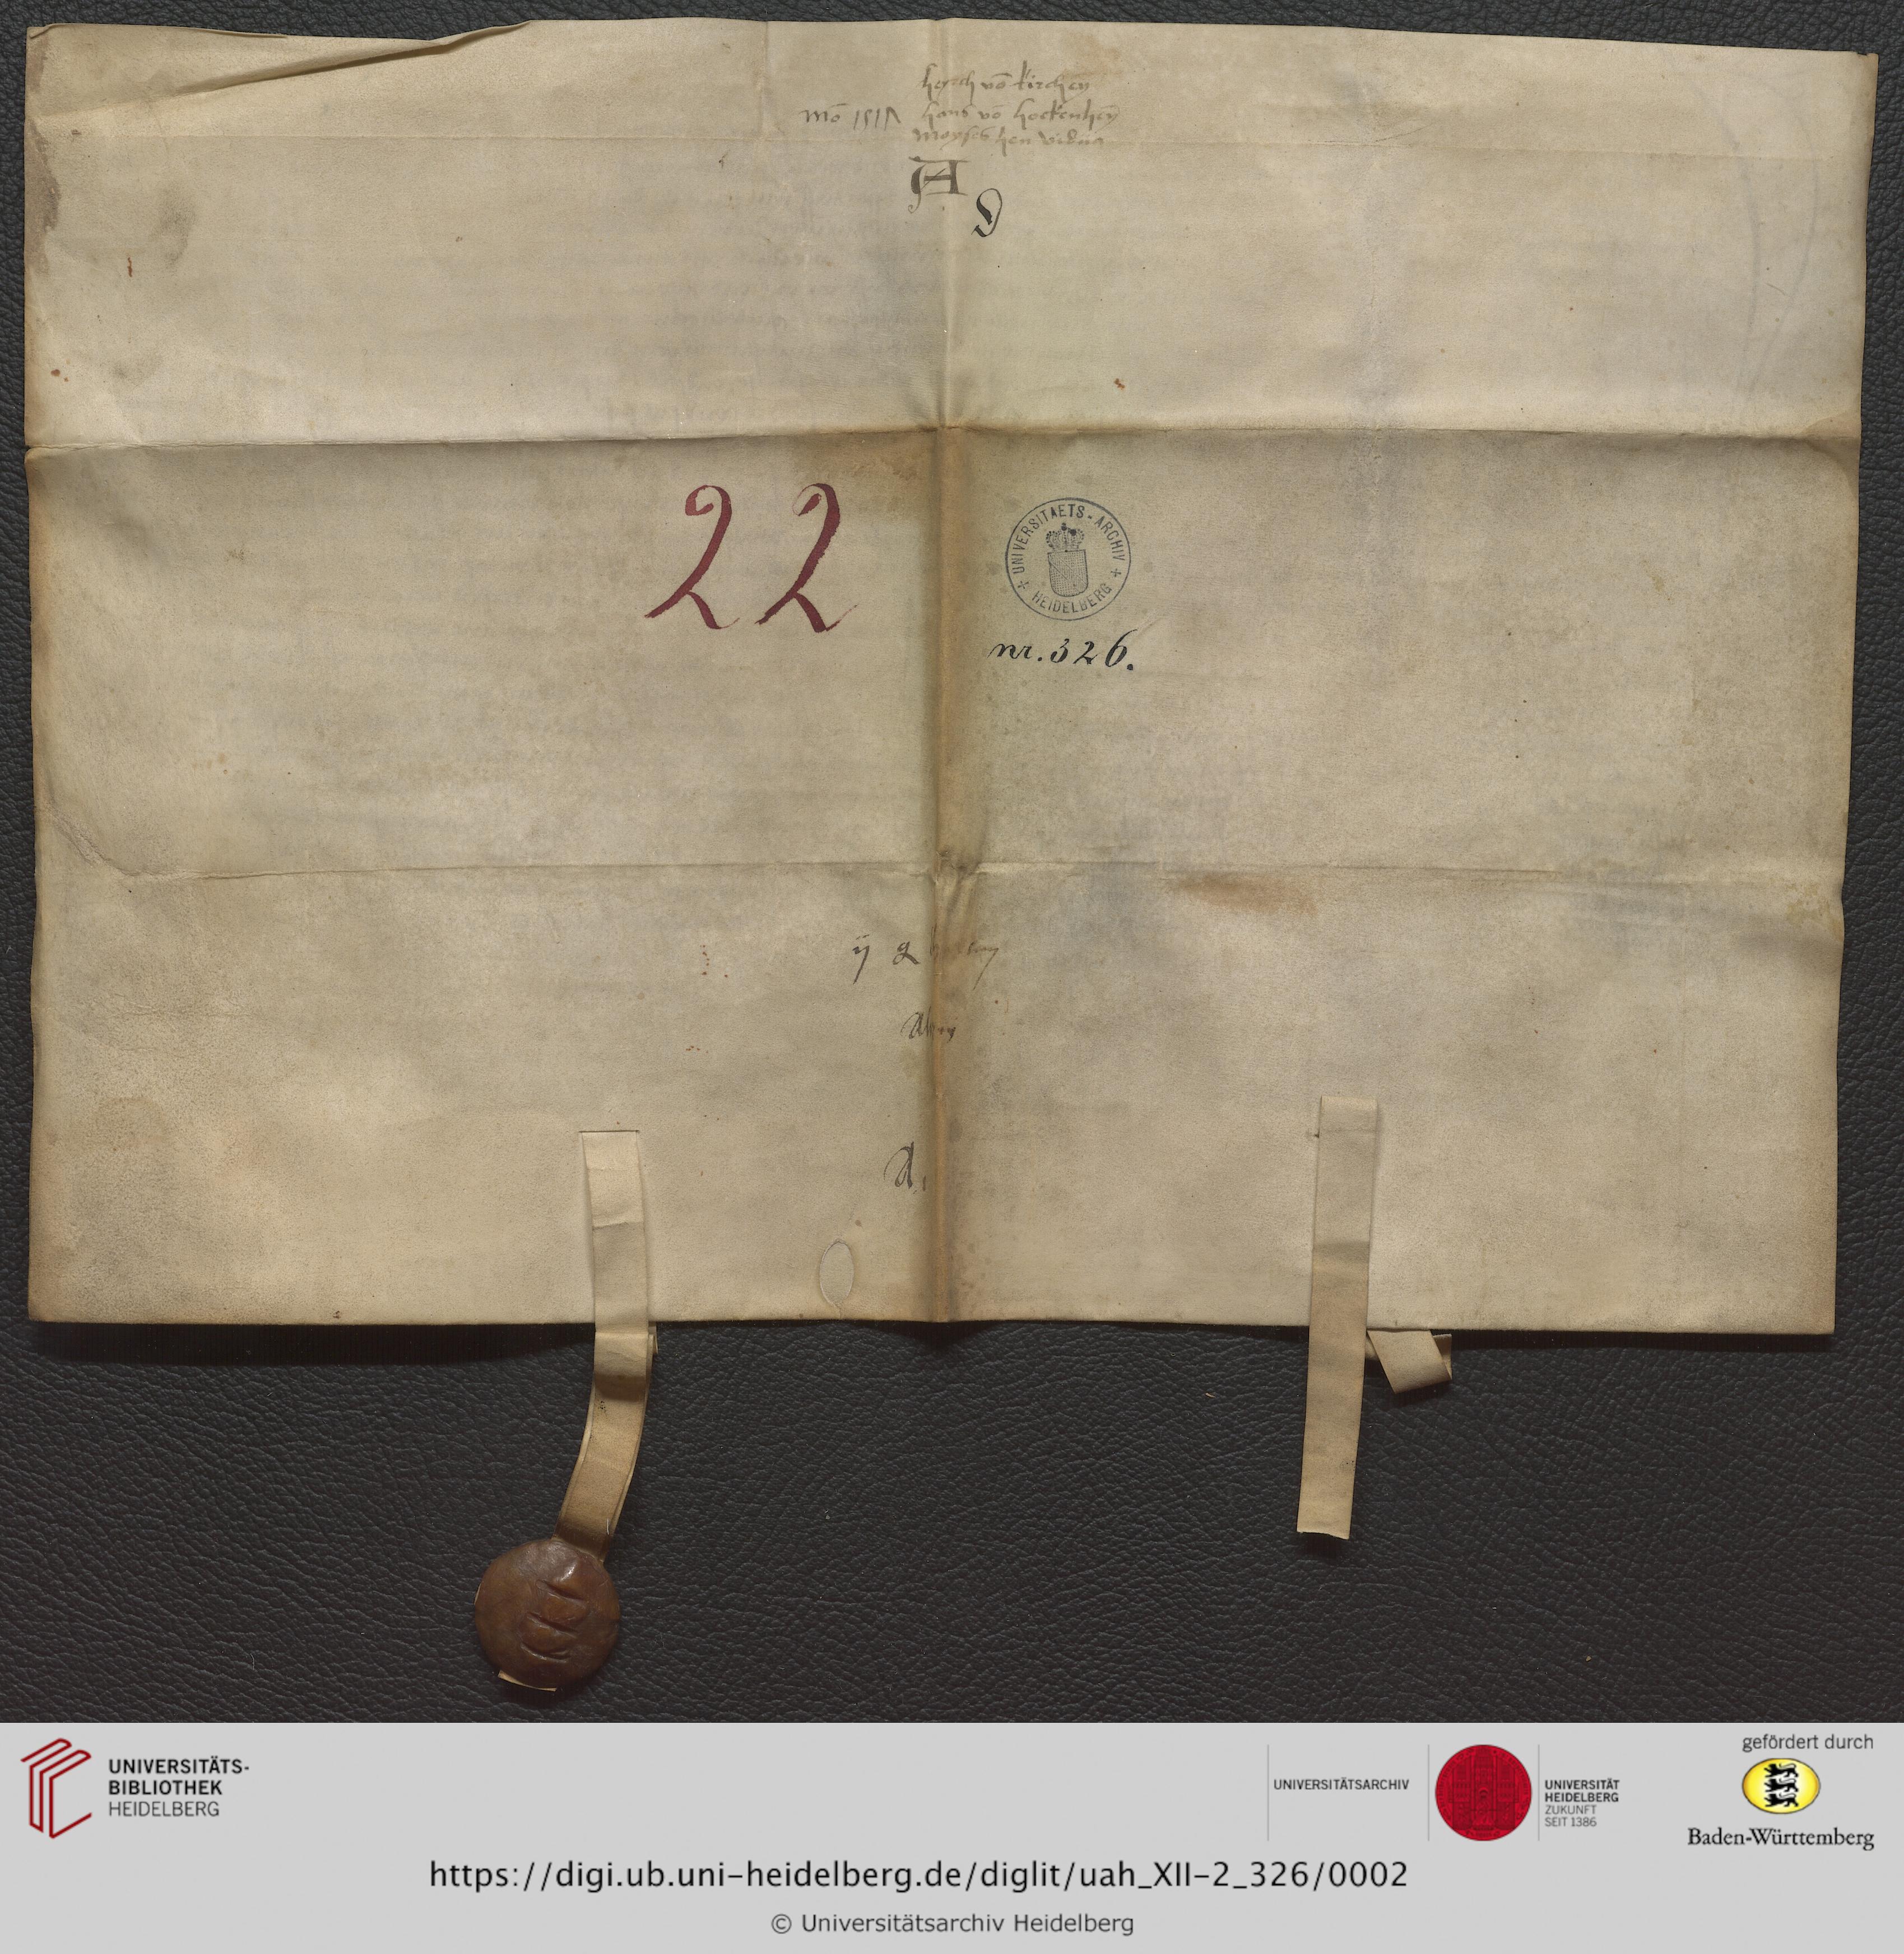 vō kirchen
mō 1517 hans vō hockenheȳ
moyses hen vidua
A
9
22
UNIVERSITAETS-ARCHIV + HEIDELBERG +
nr. 326.
ij
A
UNIVERSITÄTS-
BIBLIOTHEK
HEIDELBERG
UNIVERSITÄTSARCHIV
UNIVERSITÄT
HEIDELBERG
ZUKUNFT
SEIT 1386
gefördert durch
Baden-Württemberg
https://digi.ub.uni-heidelberg.de/diglit/uah_XII-2_326/0002
© Universitätsarchiv Heidelberg